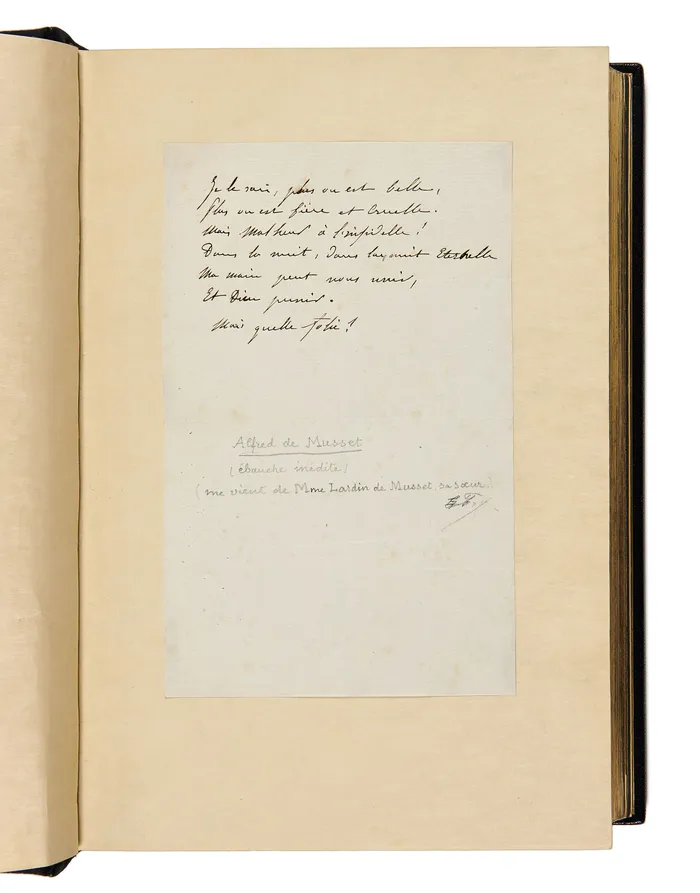 Je le sais, plus on est belle,
Plus on est fière et Cruelle.
Mais Malheur à l'infidelle!
Dans la nuit, dans la nuit Eternelle
Ma main peut nous unir,
Et Dieu punir.
Mais quelle folie!
Alfred de Musset
(ébauche inédite)
(me vient de Mme Lardin de Musset, sa sœur.)